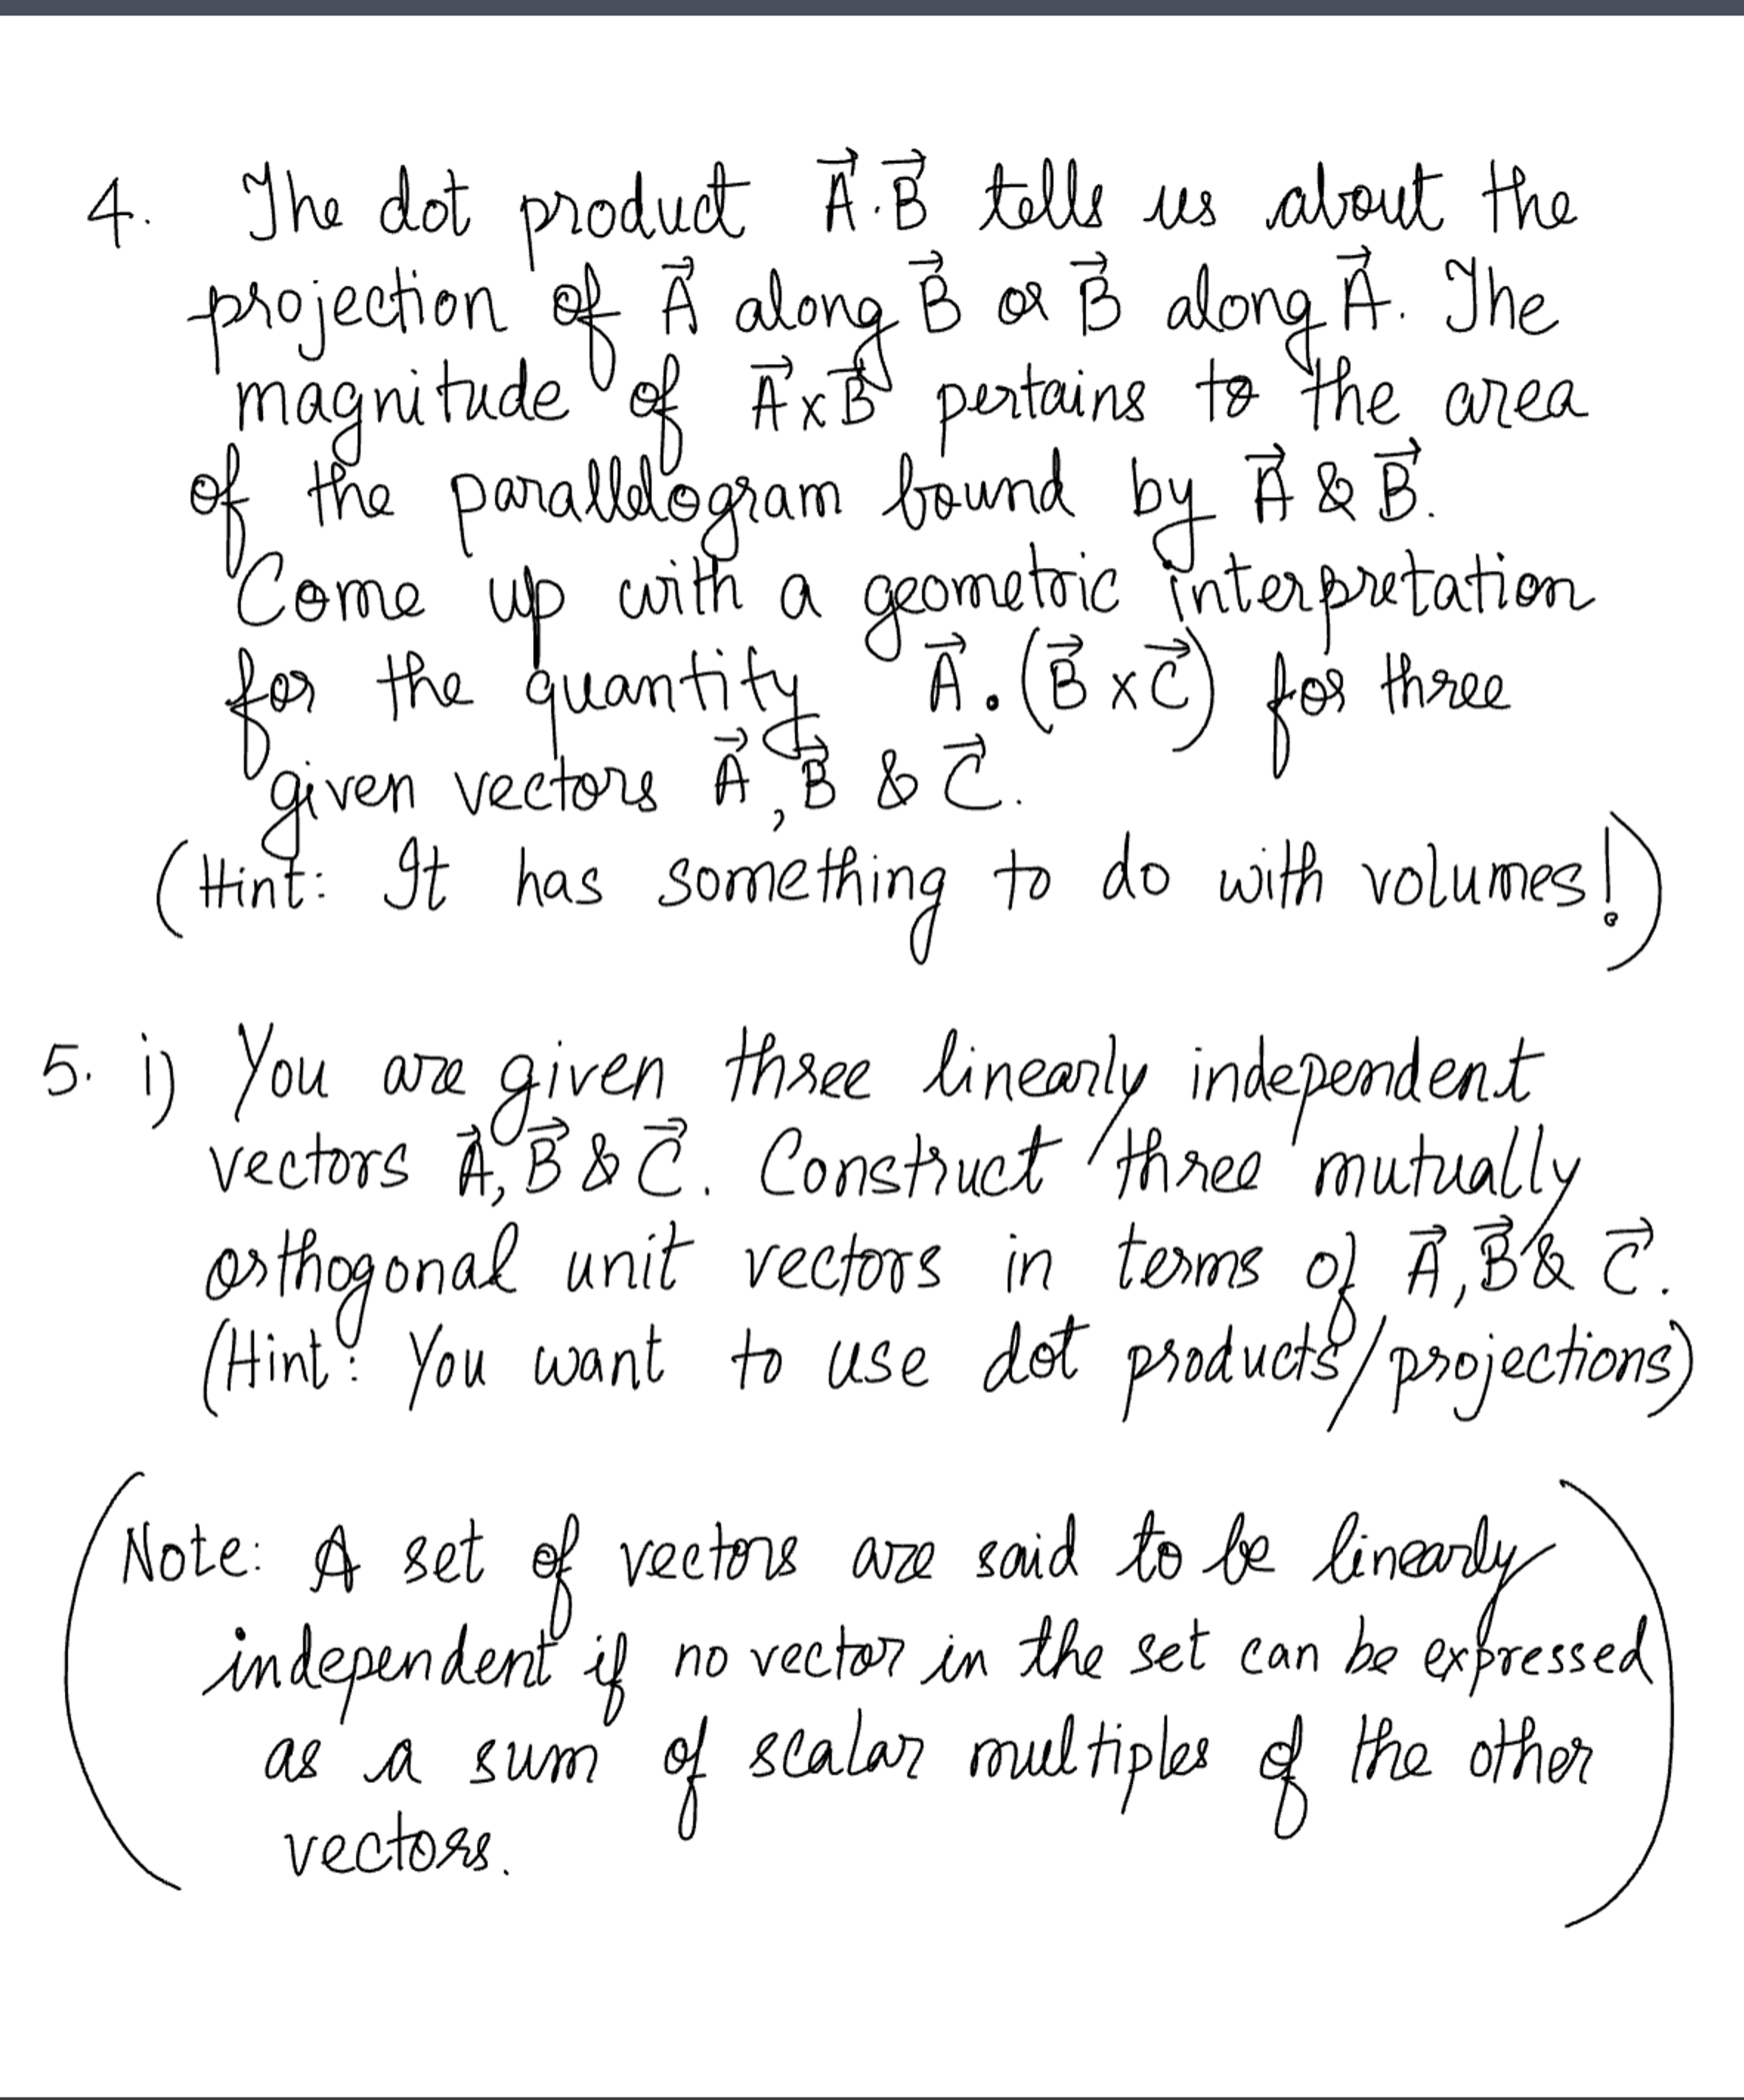 4. The dot product A⃗.B⃗ tells us about the
projection of A⃗ along B⃗ or B⃗ along A⃗. The
magnitude of A⃗xB⃗ pertains to the area
of the parallelogram bound by A⃗ & B⃗.
Come up with a geometric interpretation
for the quantity A⃗.(B⃗ x C⃗) for three
given vectors A⃗, B⃗ & C⃗.
(Hint: It has something to do with volumes!)
5. i) You are given three linearly independent
vectors A⃗, B⃗ & C⃗. Construct three mutually
orthogonal unit vectors in terms of A⃗, B⃗ & C⃗.
(Hint: You want to use dot products/projections)
(Note: A set of vectors are said to be linearly
independent if no vector in the set can be expressed
as a sum of scalar multiples of the other
vectors.)